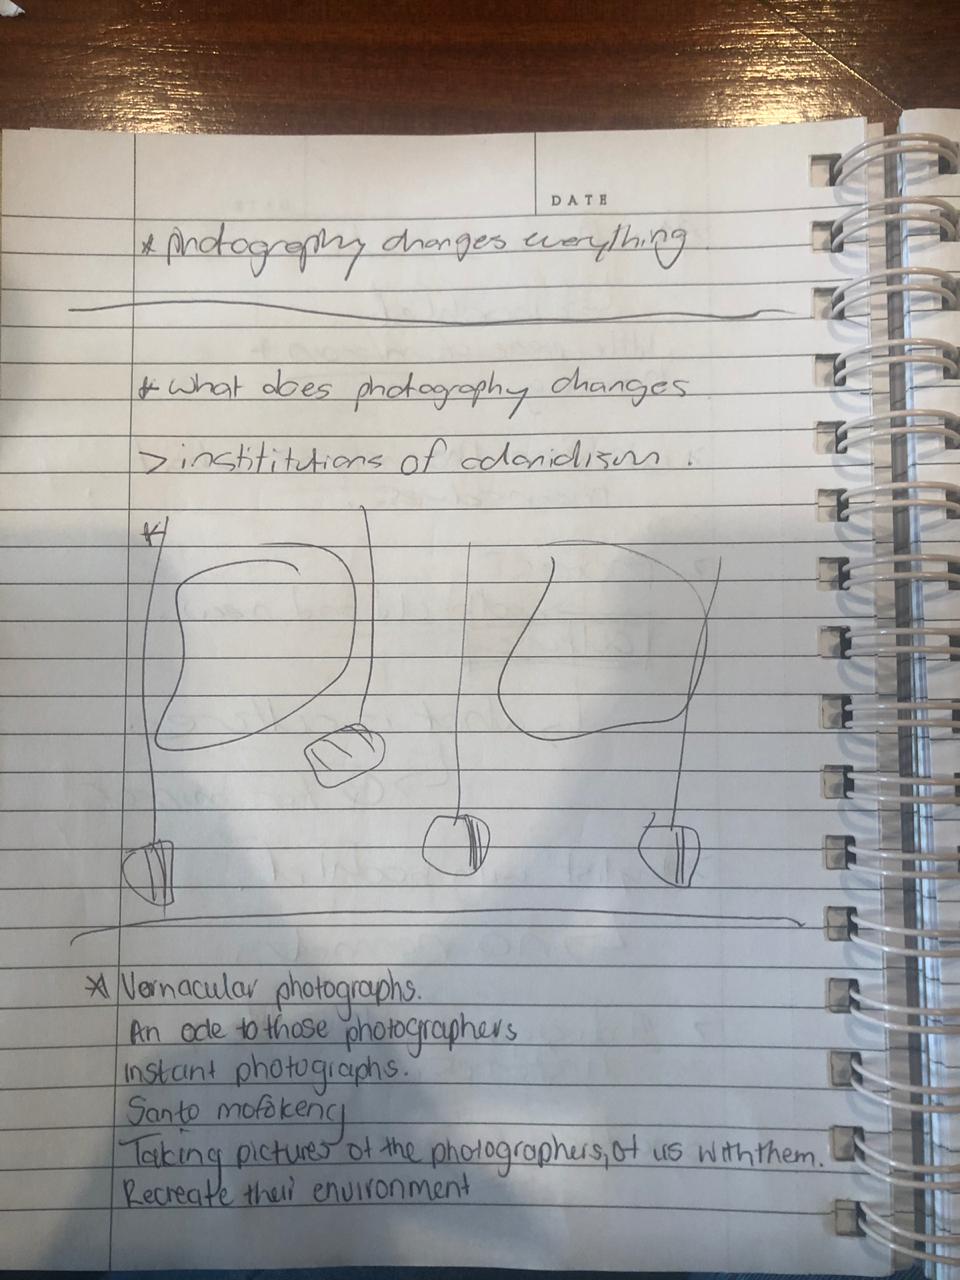 DATE
* photography changes everything
* what does photography changes
> instititutions of colonialism.
*
* Vernacular photographs.
An ode to those photographers
instant photographs.
Santo mofokeng
Taking pictures of the photographers, of us with them.
Recreate their environment